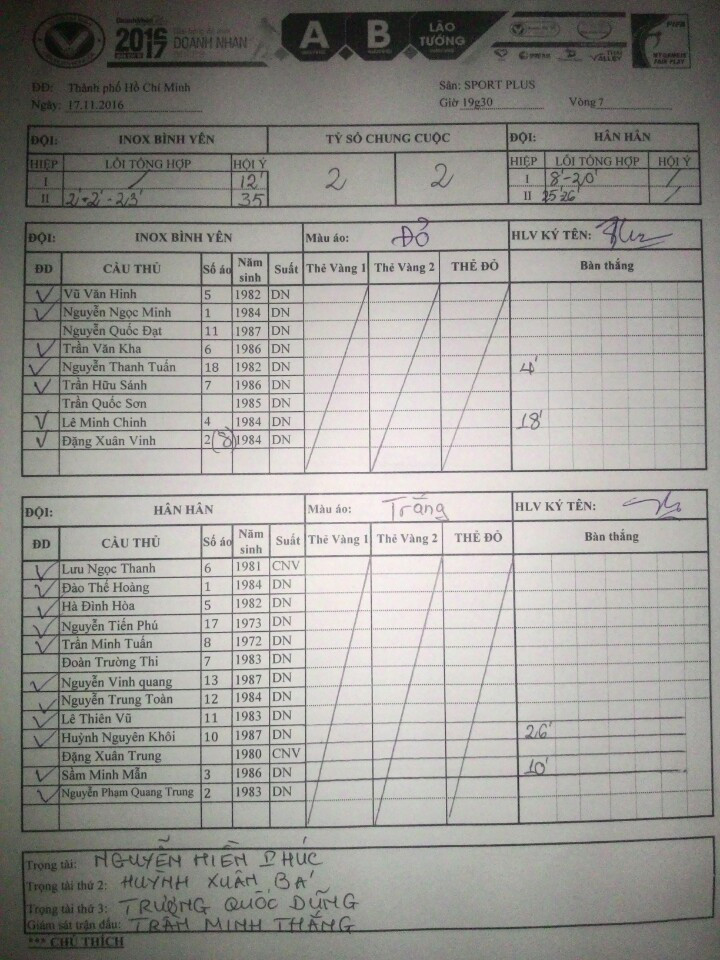 DoanhNhan
2016
2017
DOANH NHAN
A B LÃO TƯỚNG
THAI VALLEY
FIFA
MY GAME IS FAIR PLAY
ĐĐ: Thành phố Hồ Chí Minh Sân: SPORT PLUS
Ngày: 17.11.2016 Giờ 19g30 Vòng 7
ĐỘI: INOX BÌNH YÊN TỶ SỐ CHUNG CUỘC ĐỘI: HÂN HÂN
HIỆP LỖI TỔNG HỢP HỘI Ý 2 2 HIỆP LỖI TỔNG HỢP HỘI Ý
I / 12' I 8'-20' /
II 2'-2'-23' 35 II 25'26' /
ĐỘI: INOX BÌNH YÊN Màu áo: ĐỎ HLV KÝ TÊN:
ĐD CẦU THỦ Số áo Năm sinh Suất Thẻ Vàng 1 Thẻ Vàng 2 THẺ ĐỎ Bàn thắng
✓ Vũ Văn Hinh 5 1982 DN
✓ Nguyễn Ngọc Minh 1 1984 DN
Nguyễn Quốc Đạt 11 1987 DN
✓ Trần Văn Kha 6 1986 DN
✓ Nguyễn Thanh Tuấn 18 1982 DN 4'
✓ Trần Hữu Sánh 7 1986 DN
Trần Quốc Sơn 1985 DN
✓ Lê Minh Chinh 4 1984 DN 18'
✓ Đặng Xuân Vinh 2 (8) 1984 DN
ĐỘI: HÂN HÂN Màu áo: Trắng HLV KÝ TÊN:
ĐD CẦU THỦ Số áo Năm sinh Suất Thẻ Vàng 1 Thẻ Vàng 2 THẺ ĐỎ Bàn thắng
✓ Lưu Ngọc Thanh 6 1981 CNV
✓ Đào Thế Hoàng 1 1984 DN
✓ Hà Đình Hòa 5 1982 DN
✓ Nguyễn Tiến Phú 17 1973 DN
✓ Trần Minh Tuấn 8 1972 DN
Đoàn Trường Thi 7 1983 DN
✓ Nguyễn Vinh quang 13 1987 DN
✓ Nguyễn Trung Toàn 12 1984 DN
✓ Lê Thiên Vũ 11 1983 DN
✓ Huỳnh Nguyên Khôi 10 1987 DN 26'
Đặng Xuân Trung 1980 CNV
✓ Sầm Minh Mẫn 3 1986 DN 10'
✓ Nguyễn Phạm Quang Trung 2 1983 DN
Trọng tài: NGUYỄN HIỀN PHÚC
Trọng tài thứ 2: HUỲNH XUÂN BÁ
Trọng tài thứ 3: TRƯƠNG QUỐC DŨNG
Giám sát trận đấu: TRẦN MINH THẮNG
*** CHÚ THÍCH